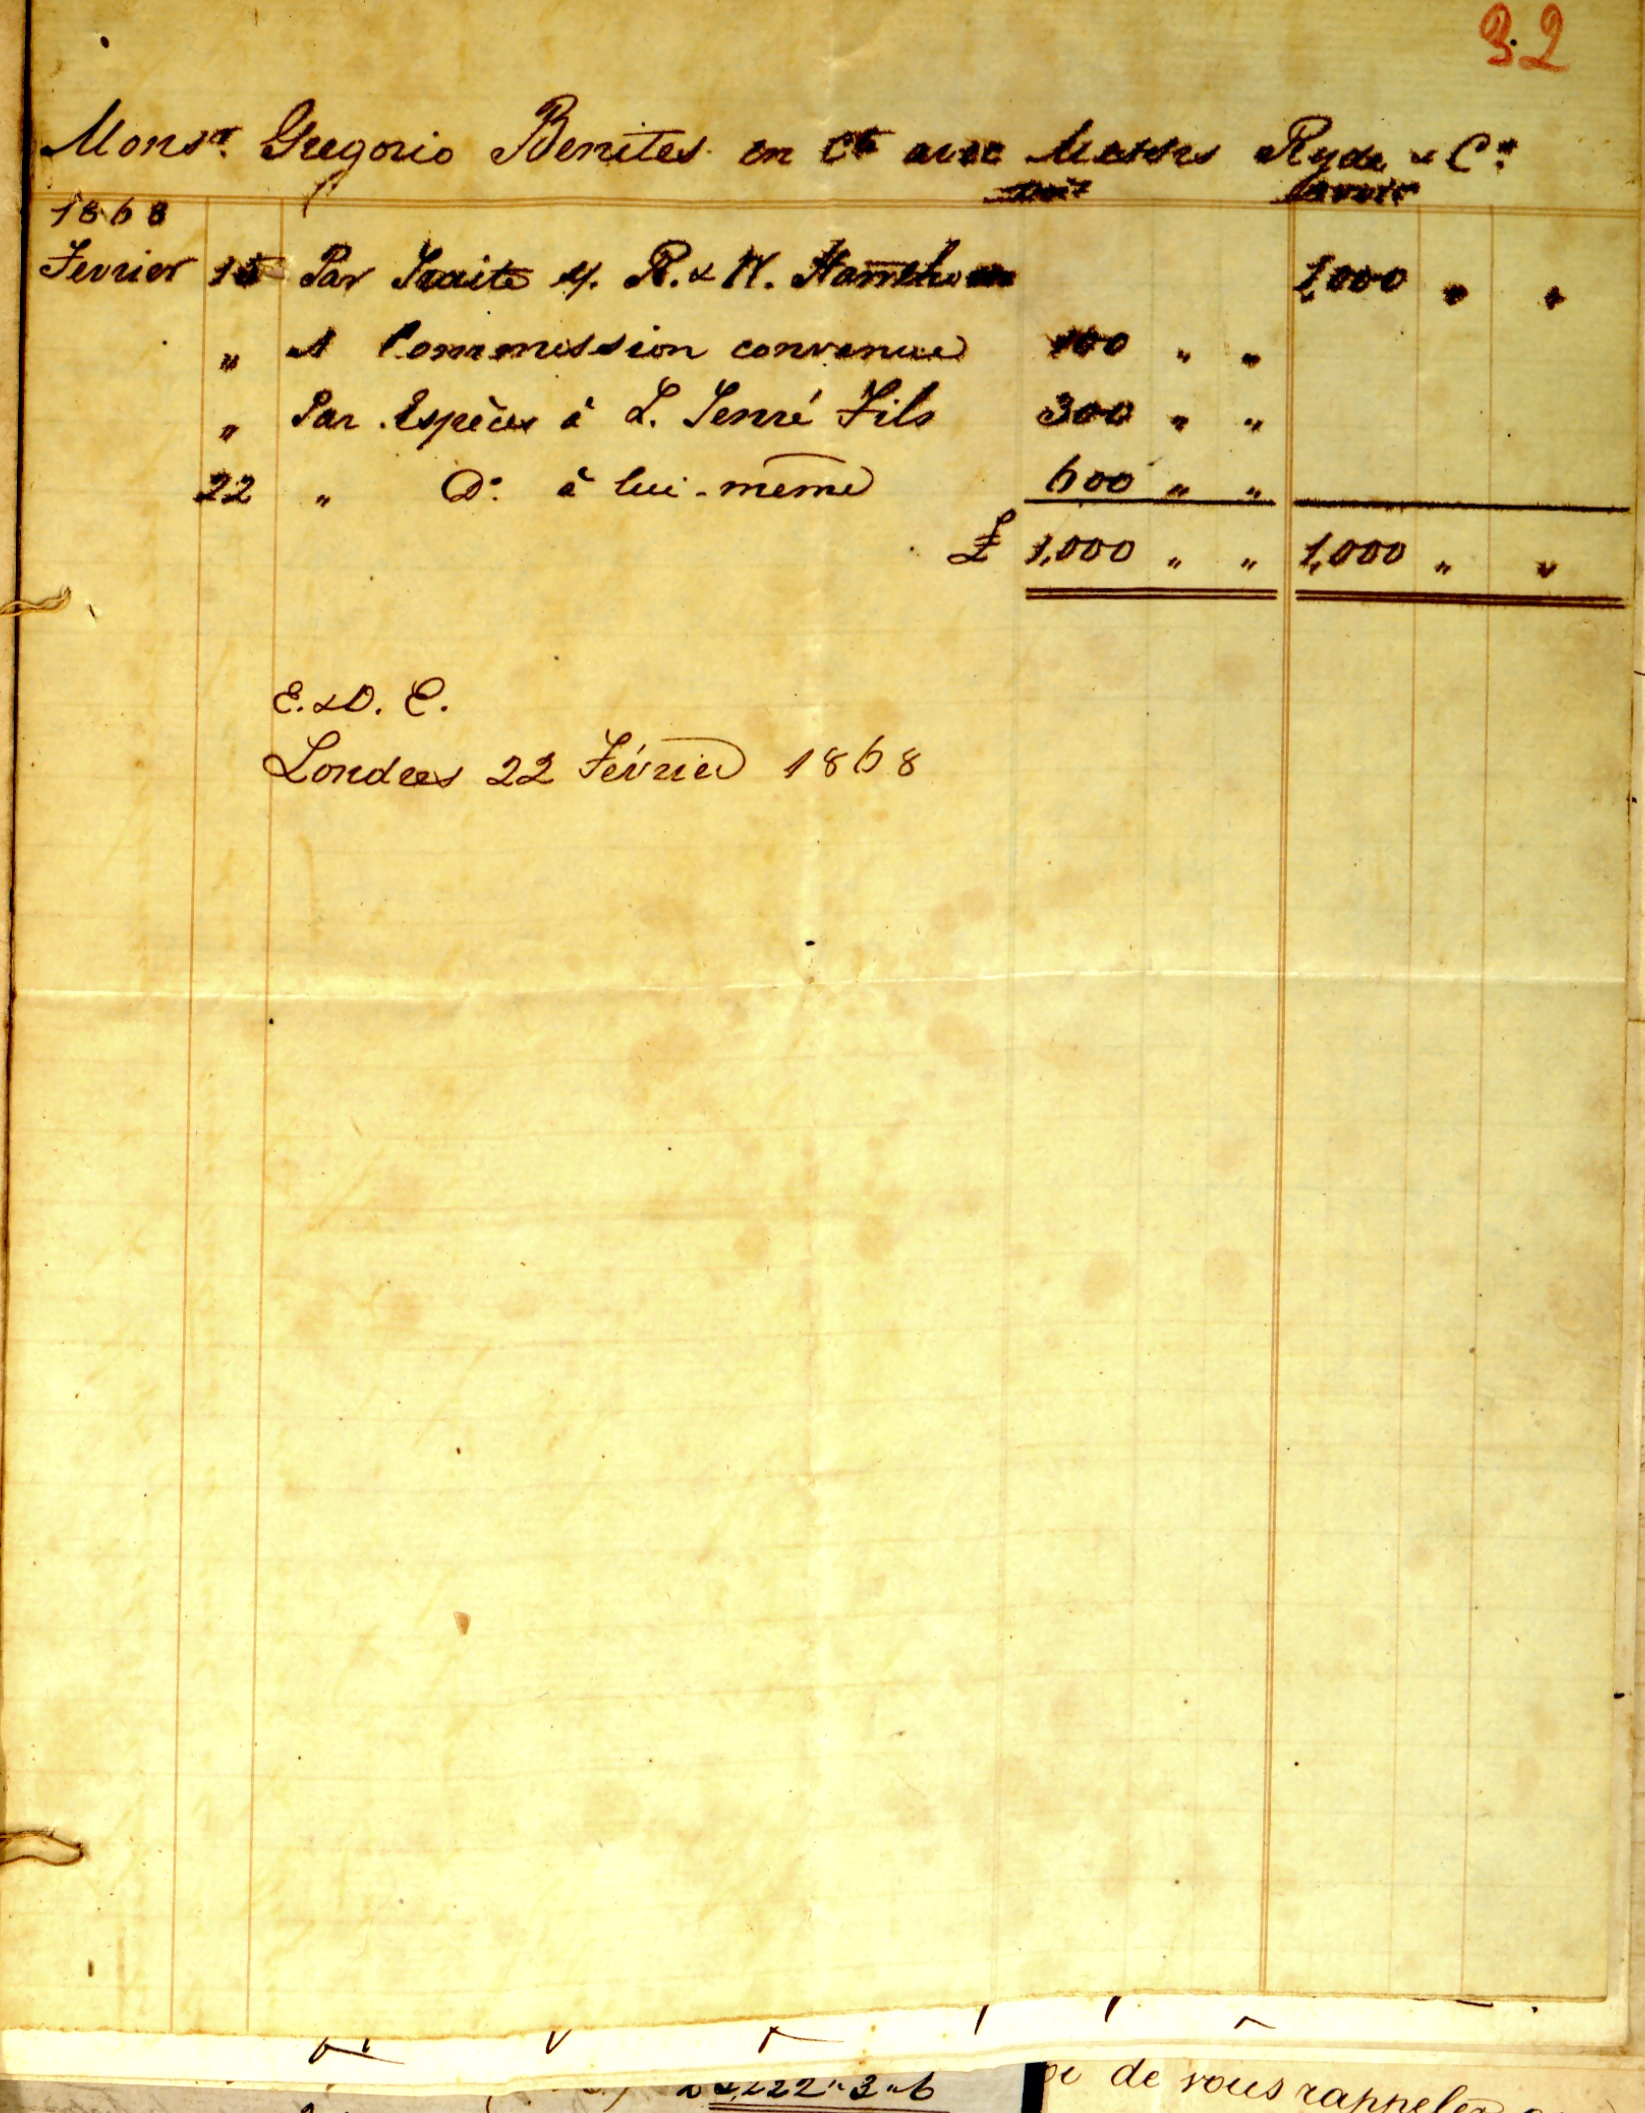 32
Monsr. Gregorio Benites en Cte avec Messrs Ryde & Co.
Doit Avoir
1868
Fevrier 15 Par Traite s/. R. & W. 1,000 " "
" A Commission convenue 100 " "
" Par Espèces à L. Fils 300 " "
22 " Do. à lui-même 600 " "
£ 1,000 " " 1,000 " "
E. & O. E.
Londres 22 Février 1868
222 " 3 " 6
de vous rappeler